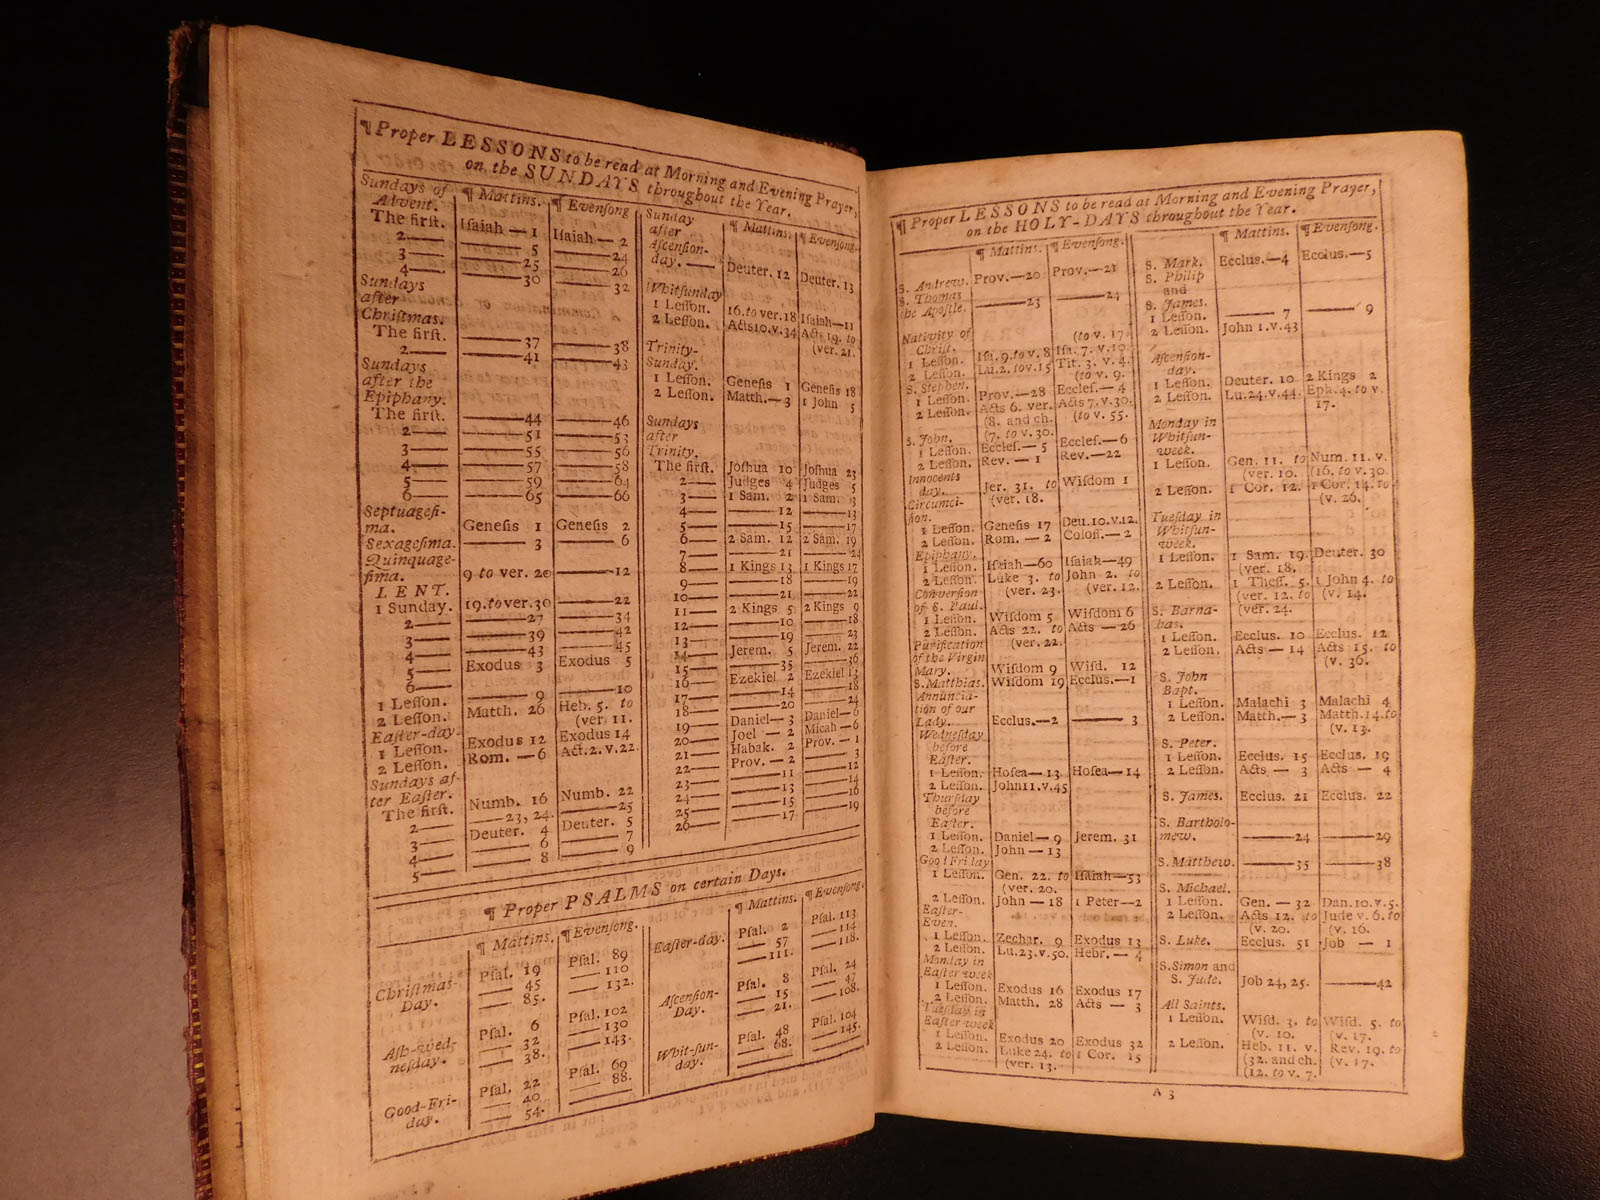 ¶ Proper LESSONS to be read at Morning and Evening Prayer,
on the SUNDAYS throughout the Year.
Sundays of ¶ Mattins. ¶ Evensong
Advent.
The first. Isaiah — 1 Isaiah — 2
2 — — 5 — 24
3 — — 25 — 26
4 — — 30 — 32
Sundays
after
Christmas.
The first. — 37 — 38
2 — — 41 — 43
Sundays
after the
Epiphany.
The first. — 44 — 46
2 — — 51 — 53
3 — — 55 — 56
4 — — 57 — 58
5 — — 59 — 64
6 — — 65 — 66
Septuagesi-
ma. Genesis 1 Genesis 2
Sexagesima. — 3 — 6
Quinquage-
sima. 9 to ver. 20 — 12
LENT.
1 Sunday. 19. to ver. 30 — 22
2 — — 27 — 34
3 — — 39 — 42
4 — — 43 — 45
5 — Exodus 3 Exodus 5
6 —
1 Lesson. — 9 — 10
2 Lesson. Matth. 26 Heb. 5. to
(ver. 11.
Easter-day.
1 Lesson. Exodus 12 Exodus 14
2 Lesson. Rom. — 6 Act. 2. v. 22.
Sundays af-
ter Easter.
The first. Numb. 16 Numb. 22
2 — — 23, 24. — 25
3 — Deuter. 4 Deuter. 5
4 — — 6 — 7
5 — — 8 — 9
Sunday ¶ Mattins. ¶ Evensong.
after
Ascension-
day. — Deuter. 12 Deuter. 13
Whitsunday
1 Lesson. 16. to ver. 18 Isaiah — 11
2 Lesson. Acts 10. v. 34 Acts 19. to
(ver. 21.
Trinity-
Sunday.
1 Lesson. Genesis 1 Genesis 18
2 Lesson. Matth. — 3 1 John 5
Sundays
after
Trinity.
The first. Joshua 10 Joshua 23
2 — Judges 4 Judges 5
3 — 1 Sam. 2 1 Sam. 3
4 — — 12 — 13
5 — — 15 — 17
6 — 2 Sam. 12 2 Sam. 19
7 — — 21 — 24
8 — 1 Kings 13 1 Kings 17
9 — — 18 — 19
10 — — 21 — 22
11 — 2 Kings 5 2 Kings 9
12 — — 10 — 18
13 — — 19 — 23
14 — Jerem. 5 Jerem. 22
15 — — 35 — 36
16 — Ezekiel 2 Ezekiel 13
17 — — 14 — 18
18 — — 20 — 24
19 — Daniel — 3 Daniel — 6
20 — Joel — 2 Micah — 6
21 — Habak. 2 Prov. — 1
22 — Prov. — 2 — 3
23 — — 11 — 12
24 — — 13 — 14
25 — — 15 — 16
26 — — 17 — 19
¶ Proper PSALMS on certain Days.
¶ Mattins. ¶ Evensong.
Christmas-
Day.
Psal. 19 Psal. 89
— 45 — 110
— 85. — 132.
Ash-wed-
nesday.
Psal. 6 Psal. 102
— 32 — 130
— 38. — 143.
Good-Fri-
day.
Psal. 22 Psal. 69
— 40 — 88.
— 54.
¶ Mattins. ¶ Evensong.
Easter-day. Psal. 2 Psal. 113
— 57 — 114
— 111. — 118.
Ascension-
Day.
Psal. 8 Psal. 24
— 15 — 47
— 21. — 108.
Whit-sun-
day.
Psal. 48 Psal. 104
— 68. — 145.
¶ Proper LESSONS to be read at Morning and Evening Prayer,
on the HOLY-DAYS throughout the Year.
¶ Mattins. ¶ Evensong.
S. Andrew. Prov. — 20 Prov. — 21
S. Thomas
the Apostle. — 23 — 24
Nativity of
Christ. (to v. 17.
1 Lesson. Isa. 9. to v. 8 Isa. 7. v. 10.
2 Lesson. Lu. 2. to v. 15 Tit. 3. v. 4.
(to v. 9.
S. Stephen.
1 Lesson. Prov. — 28 Eccles. — 4
2 Lesson. Acts 6. ver. Acts 7. v. 30.
(8. and ch. (to v. 55.
(7. to v. 30.
S. John.
1 Lesson. Eccles. — 5 Eccles. — 6
2 Lesson. Rev. — 1 Rev. — 22
Innocents
day. Jer. 31. to Wisdom 1
(ver. 18.
Circumci-
sion.
1 Lesson. Genesis 17 Deu. 10. v. 12.
2 Lesson. Rom. — 2 Coloss. — 2
Epiphany.
1 Lesson. Isaiah — 60 Isaiah — 49
2 Lesson. Luke 3. to John 2. to
(ver. 23. (ver. 12.
Conversion
of S. Paul.
1 Lesson. Wisdom 5 Wisdom 6
2 Lesson. Acts 22. to Acts — 26
(ver. 22.
Purification
of the Virgin
Mary. Wisdom 9 Wisd. 12
S. Matthias. Wisdom 19 Ecclus. — 1
Annuncia-
tion of our
Lady. Ecclus. — 2 — 3
Wednesday
before
Easter.
1 Lesson. Hosea — 13 Hosea — 14
2 Lesson. John 11. v. 45
Thursday
before
Easter.
1 Lesson. Daniel — 9 Jerem. 31
2 Lesson. John — 13
Good Friday
1 Lesson. Gen. 22. to Isaiah — 53
(ver. 20.
2 Lesson. John — 18 1 Peter — 2
Easter-
Even.
1 Lesson. Zechar. 9 Exodus 13
2 Lesson. Lu. 23. v. 50. Hebr. — 4
Monday in
Easter week
1 Lesson. Exodus 16 Exodus 17
2 Lesson. Matth. 28 Acts — 3
Tuesday in
Easter week
1 Lesson. Exodus 20 Exodus 32
2 Lesson. Luke 24. to 1 Cor. 15
(ver. 13.
¶ Mattins. ¶ Evensong.
S. Mark. Ecclus. — 4 Ecclus. — 5
S. Philip
and
S. James.
1 Lesson. — 7 — 9
2 Lesson. John 1. v. 43
Ascension-
day.
1 Lesson. Deuter. 10 2 Kings 2
2 Lesson. Lu. 24. v. 44. Eph. 4. to v.
17.
Monday in
Whitsun-
week.
1 Lesson. Gen. 11. to Num. 11. v.
(ver. 10. (16. to v. 30.
2 Lesson. 1 Cor. 12. 1 Cor. 14. to
(v. 26.
Tuesday in
Whitsun-
week.
1 Lesson. 1 Sam. 19. Deuter. 30
(ver. 18.
2 Lesson. 1 Thess. 5. 1 John 4. to
(ver. 12. to (v. 14.
(ver. 24.
S. Barna-
bas.
1 Lesson. Ecclus. 10 Ecclus. 12
2 Lesson. Acts — 14 Acts 15. to
(v. 36.
S. John
Bapt.
1 Lesson. Malachi 3 Malachi 4
2 Lesson. Matth. — 3 Matth. 14. to
(v. 13.
S. Peter.
1 Lesson. Ecclus. 15 Ecclus. 19
2 Lesson. Acts — 3 Acts — 4
S. James. Ecclus. 21 Ecclus. 22
S. Bartholo-
mew. — 24 — 29
S. Matthew. — 35 — 38
S. Michael.
1 Lesson. Gen. — 32 Dan. 10. v. 5.
2 Lesson. Acts 12. to Jude v. 6. to
(v. 20. (v. 16.
S. Luke. Ecclus. 51 Job — 1
S. Simon and
S. Jude. Job 24, 25. — 42
All Saints.
1 Lesson. Wisd. 3. to Wisd. 5. to
(v. 10. (v. 17.
2 Lesson. Heb. 11. v. Rev. 19. to
(32. and ch. (v. 17.
(12. to v. 7.
A 3